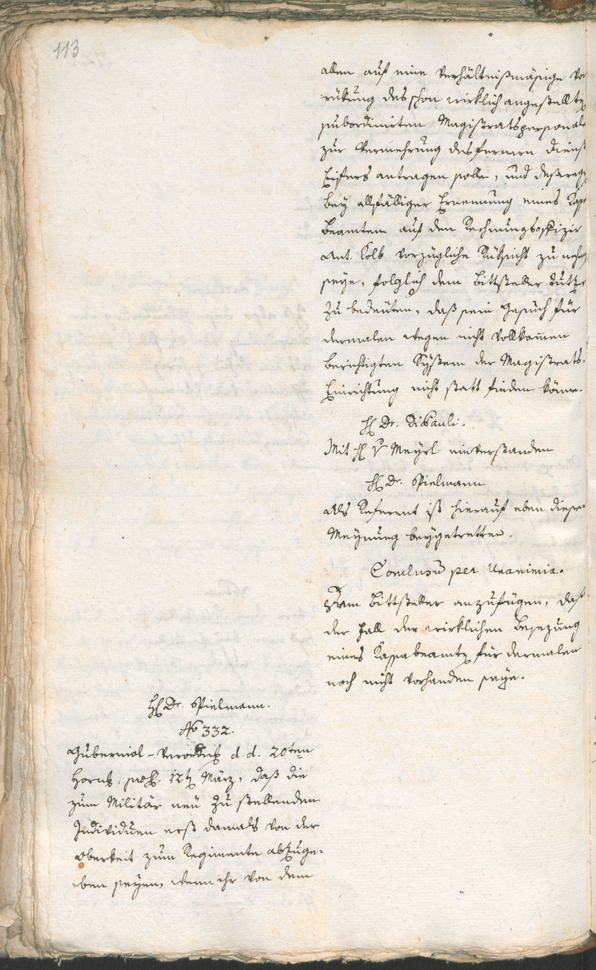 113
allen auf eine verhältnißmäsige Vor
rükung des schon wirklich angestellten
subordinirten Magistratspersonals
zur Vermehrung des fernern Dienst
Eifers antragen solle, und
bey allfälliger Ernennung eines
Beamten auf den Rechnungsoffizir
Ant. Kolb vorzügliche Rüksicht zu nehmen
seye, folglich dem Bittsteller
zu bedeuten, daß sein Gesuch für
dermalen wegen nicht vollkommen
berichtigten Sÿstem der Magistrats-
Einrichtung nicht statt finden könne.
H Dr. DiPauli.
Mit H v Meyrl einverstanden
H Dr. Spielmann
Als Referent ist hierauf eben dieser
Meynung beygetretten.
Conclusum per Unanimia.
Dem Bittsteller anzufügen, daß
der Fall der wirklichen Besezung
eines Kassabeamten für dermalen
noch nicht vorhanden seye.
H Dr. Spielmann.
No 332.
Gubernial-Verordnung d. d. 20ten
Hornung, 12ten März, daß die
zum Militär neu zu stellenden
Individuen erst damals von der
Oberkeit zum Regimente abzuge-
ben seyen, wenn ihr von dem